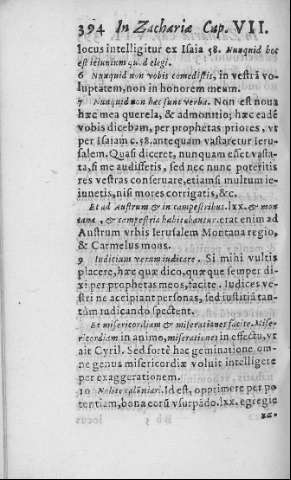 394 In Zachariæ Cap. VII.
locus intelligitur ex Isaia 58. Nunquid hoc
est ieiunium quod elegi.
6 Nunquid non vobis comedistis, in vestrā vo-
luptatem, non in honorem meum.
7 Nunquid non hæc sunt verba. Non est noua
hæc mea querela, & admonitio; hæc eadē
vobis dicebam, per prophetas priores, vt
per Isaiam c.58. antequam vastaretur Ieru-
salem. Quasi diceret, nunquam esset vasta-
ta, si me audissetis, sed nec nunc poteritis
res vestras conseruare, etiamsi multum ie-
iunetis, nisi mores corrigatis, &c.
Et ad Austrum & in campestribus. lxx. & mon
tana, & campestria habitabantur. erat enim ad
Austrum vrbis Ierusalem Montana regio,
& Carmelus mons.
9 Iudicium verum iudicate. Si mihi vultis
placere, hæc quæ dico, quæque semper di-
xi per prophetas meos, facite. Iudices ve-
stri ne accipiant personas, sed iustitiā tan-
tùm iudicando spectent.
Et misericordiam & miserationes facite. Mise-
ricordiam in animo, miserationes in effectu, vt
ait Cyril. Sed fortè hac geminatione om-
ne genus misericordiæ voluit intelligere
per exaggerationem.
10 Nolite calūniari. Id est, opprimere per po
tentiam, bona eorū vsurpādo. lxx. egregiè
Bb 5